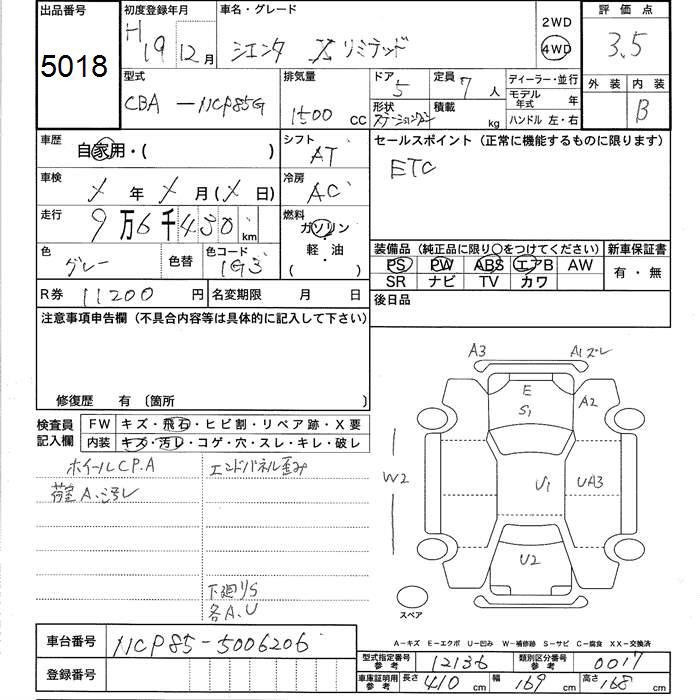 出品番号
5018
初度登録年月
H19 12月
車名・グレード
シエンタ Xリミテッド
2WD
4WD
評価点
3.5
外装 内装
B
型式
CBA-NCP85G
排気量
1500 cc
ドア
5
定員
7 人
形状
ステーションワゴン
積載
kg
ディーラー・並行
モデル年式 年
ハンドル 左・右
車歴
自家用・( )
シフト
AT
セールスポイント (正常に機能するものに限ります)
ETC
車検
X 年 X 月 (X 日)
冷房
AC
走行
9万6千430 km
燃料
ガソリン
・
軽・油
( )
色
グレー
色替
色コード
1G3
装備品 (純正品に限り○をつけてください)
PS PW ABS エアB AW
SR ナビ TV カワ
新車保証書
有・無
R券 11200 円
名変期限 月 日
後日品
注意事項申告欄 (不具合内容等は具体的に記入して下さい)
修復歴 有 〔箇所 〕
検査員記入欄
FW キズ・飛石・ヒビ割・リペア跡・X要
内装 キズ・汚レ・コゲ・穴・スレ・キレ・破レ
ホイールCP.A
エンドパネル歪み
荷室A.汚レ
下廻りS
各A.U
A3
A1ズレ
E
S1
A2
W2
U1
UA3
U2
スペア
A-キズ E-エクボ U-凹み W-補修跡 S-サビ C-腐食 XX-交換済
車台番号
NCP85-5006206
登録番号
型式指定番号 参考
12136
類別区分番号 参考
0017
車庫証明用 参考
長さ 410 cm
幅 169 cm
高さ 168 cm